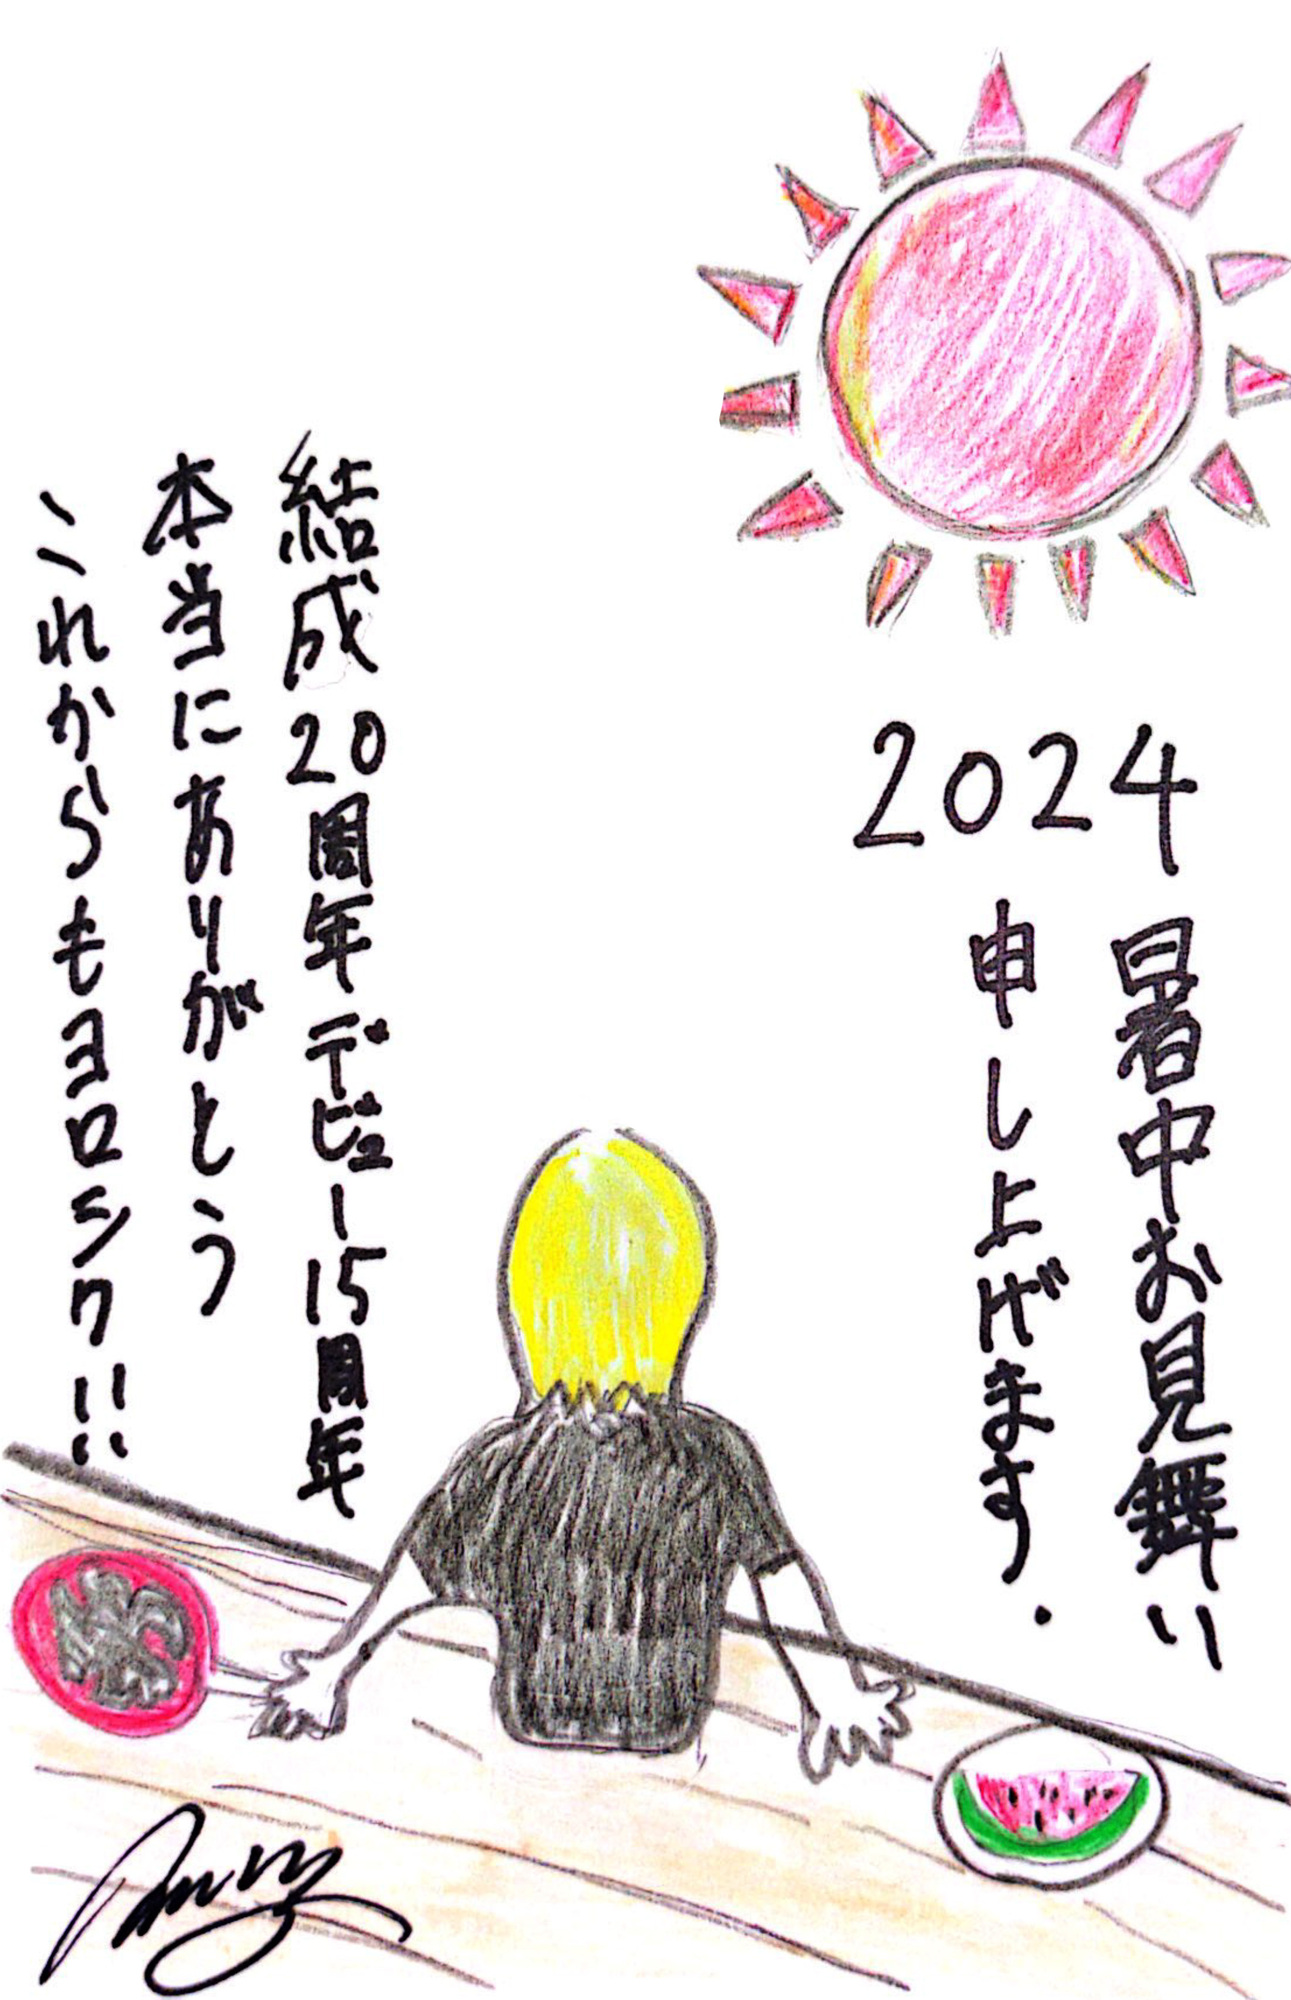 2024
暑中お見舞い
申し上げます.
結成20周年デビュー15周年
本当にありがとう
これからもヨロシク!!